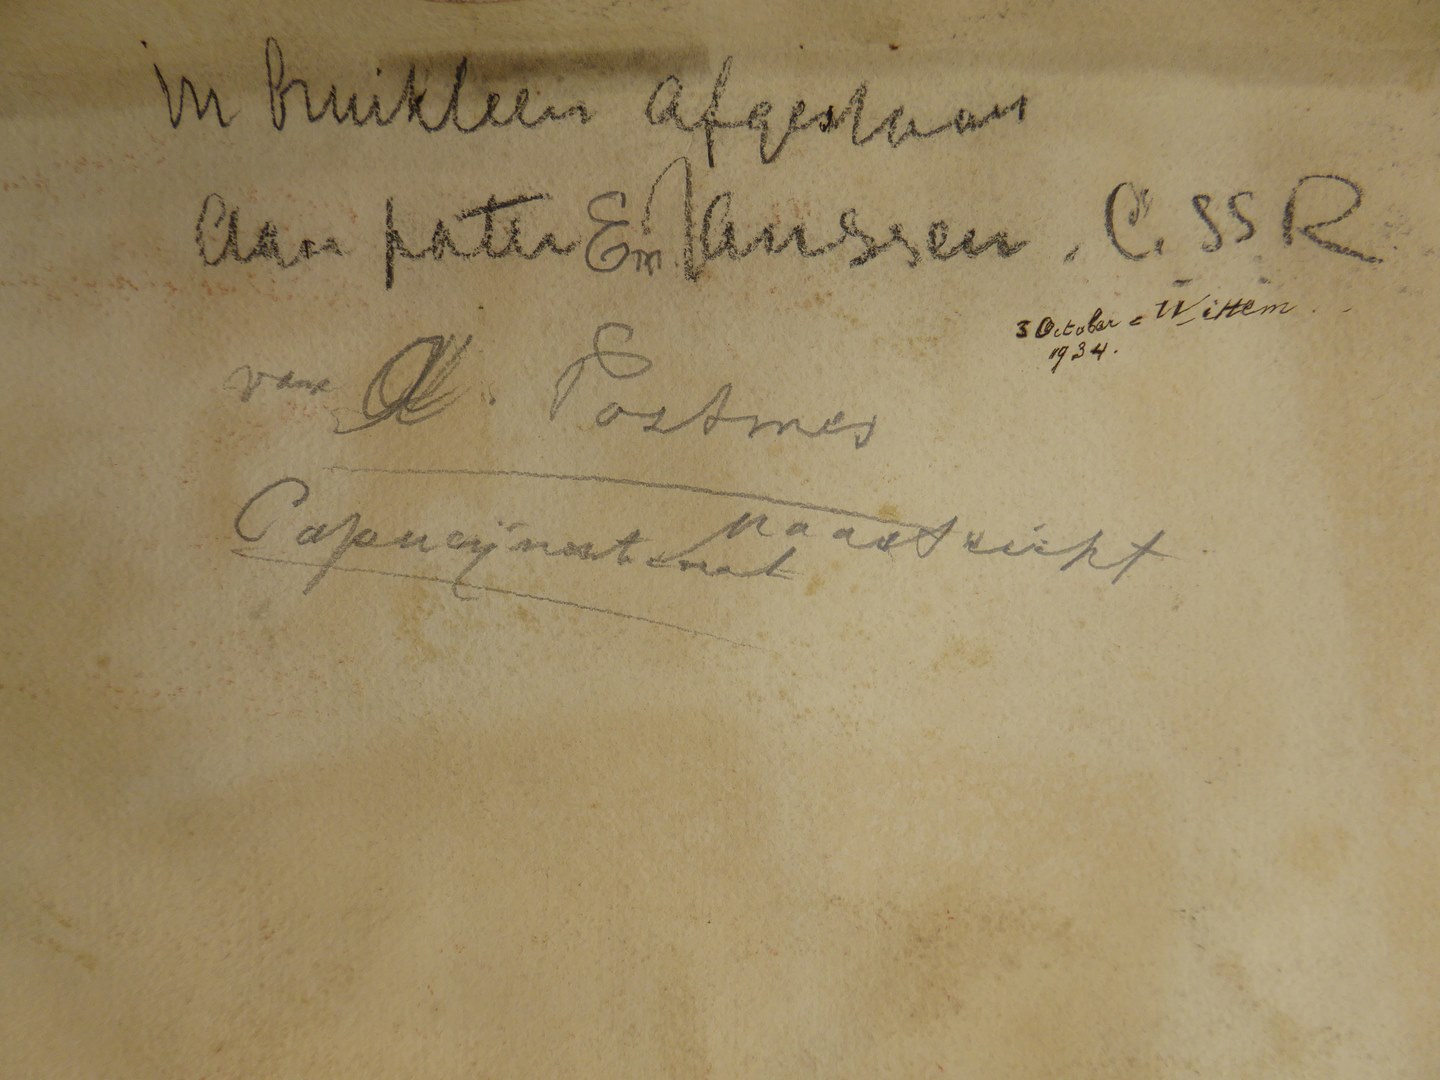 in bruikleen afgestaan
aan pater Em Janssen. C. SS R
3 October = Wittem.
1934.
van A. Postmes
Maastricht
Capucijnestraat